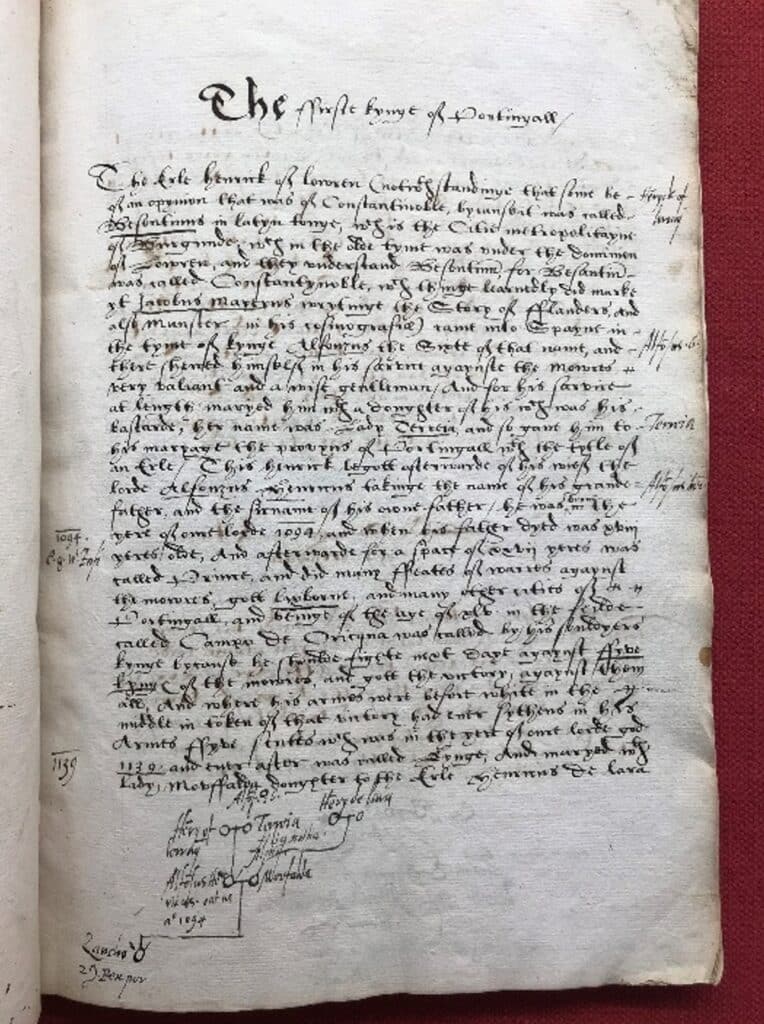 The ffirste kynge of Portingall
The Erle Henrick of Loreen (notwthstandinge that some be
of an oppynion that was of Constantinoble, bycause it was called
Besontinus in latyn tonge, wch is the Citie metropolitayne
of Burgundie, wch in the olde tyme was under the dominion
of Loreen, and they understand Besontin, for Besantin
was called Constantynoble, wch thinge learnedly did marke
yt Jacobus Mayerus wrytinge the Story of Flanders, And
also Munster in his cosmografie) came into Spayne in
the tyme of kynge Alfonzus the Sixte of that name, and
there shewed himself in his service agaynste the Mowres
very valiant and a wise gentleman, And for his service
at length maryed him wth a doughter of his wch was his
bastarde, her name was Lady Tereia, and so gave him to
his maryage the provyns of Portingall wth the tytle of
an Erle, This Henrick begott afterwarde of his wief the
lorde Alfonzus Henricus takinge the name of his grande
father, and the sirname of his owne father, he was borne in the
yere of oure lorde 1094, and when his father dyed was xviii
yeres olde, And afterwarde for a space of xxvii yeres was
called Prince, and did many ffeates of warres agaynst
the mowres, gott Lixborne, and many other cities of
Portingall, and beinge of the age of xlv in the feilde
called Campo de Oricqna was called by his sowldyers
kynge because he should fighte next daye agaynst ffyve
kyngs of the mowres, and gott the victory agaynst them
all, And where his armes were before white in the
middle in token of that victory had ever sythens in his
Armes ffyve which was in the yere of oure lorde god
1139 and ever after was called Kynge, And maryed wth
Lady Mouffalda doughter to the Erle Henricus de Lara
Terreia
1094
1139
Alfons 6
Henry de Lara
Henry of
Tereia
Alfonsus
Moufalda
ao 1094
Zancho